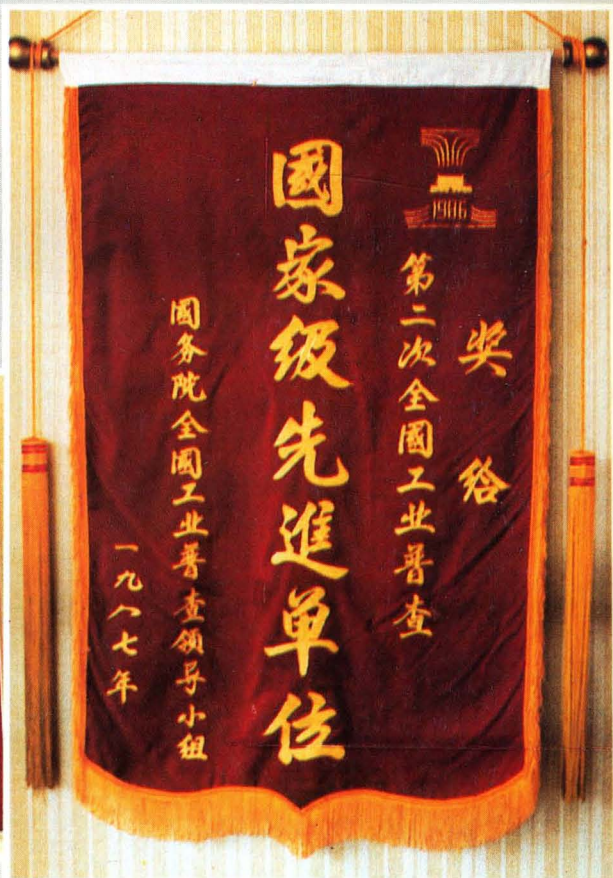 1986
奖给
第二次全國工业普查
國家级先進单位
國务院全國工业普查领导小组
一九八七年